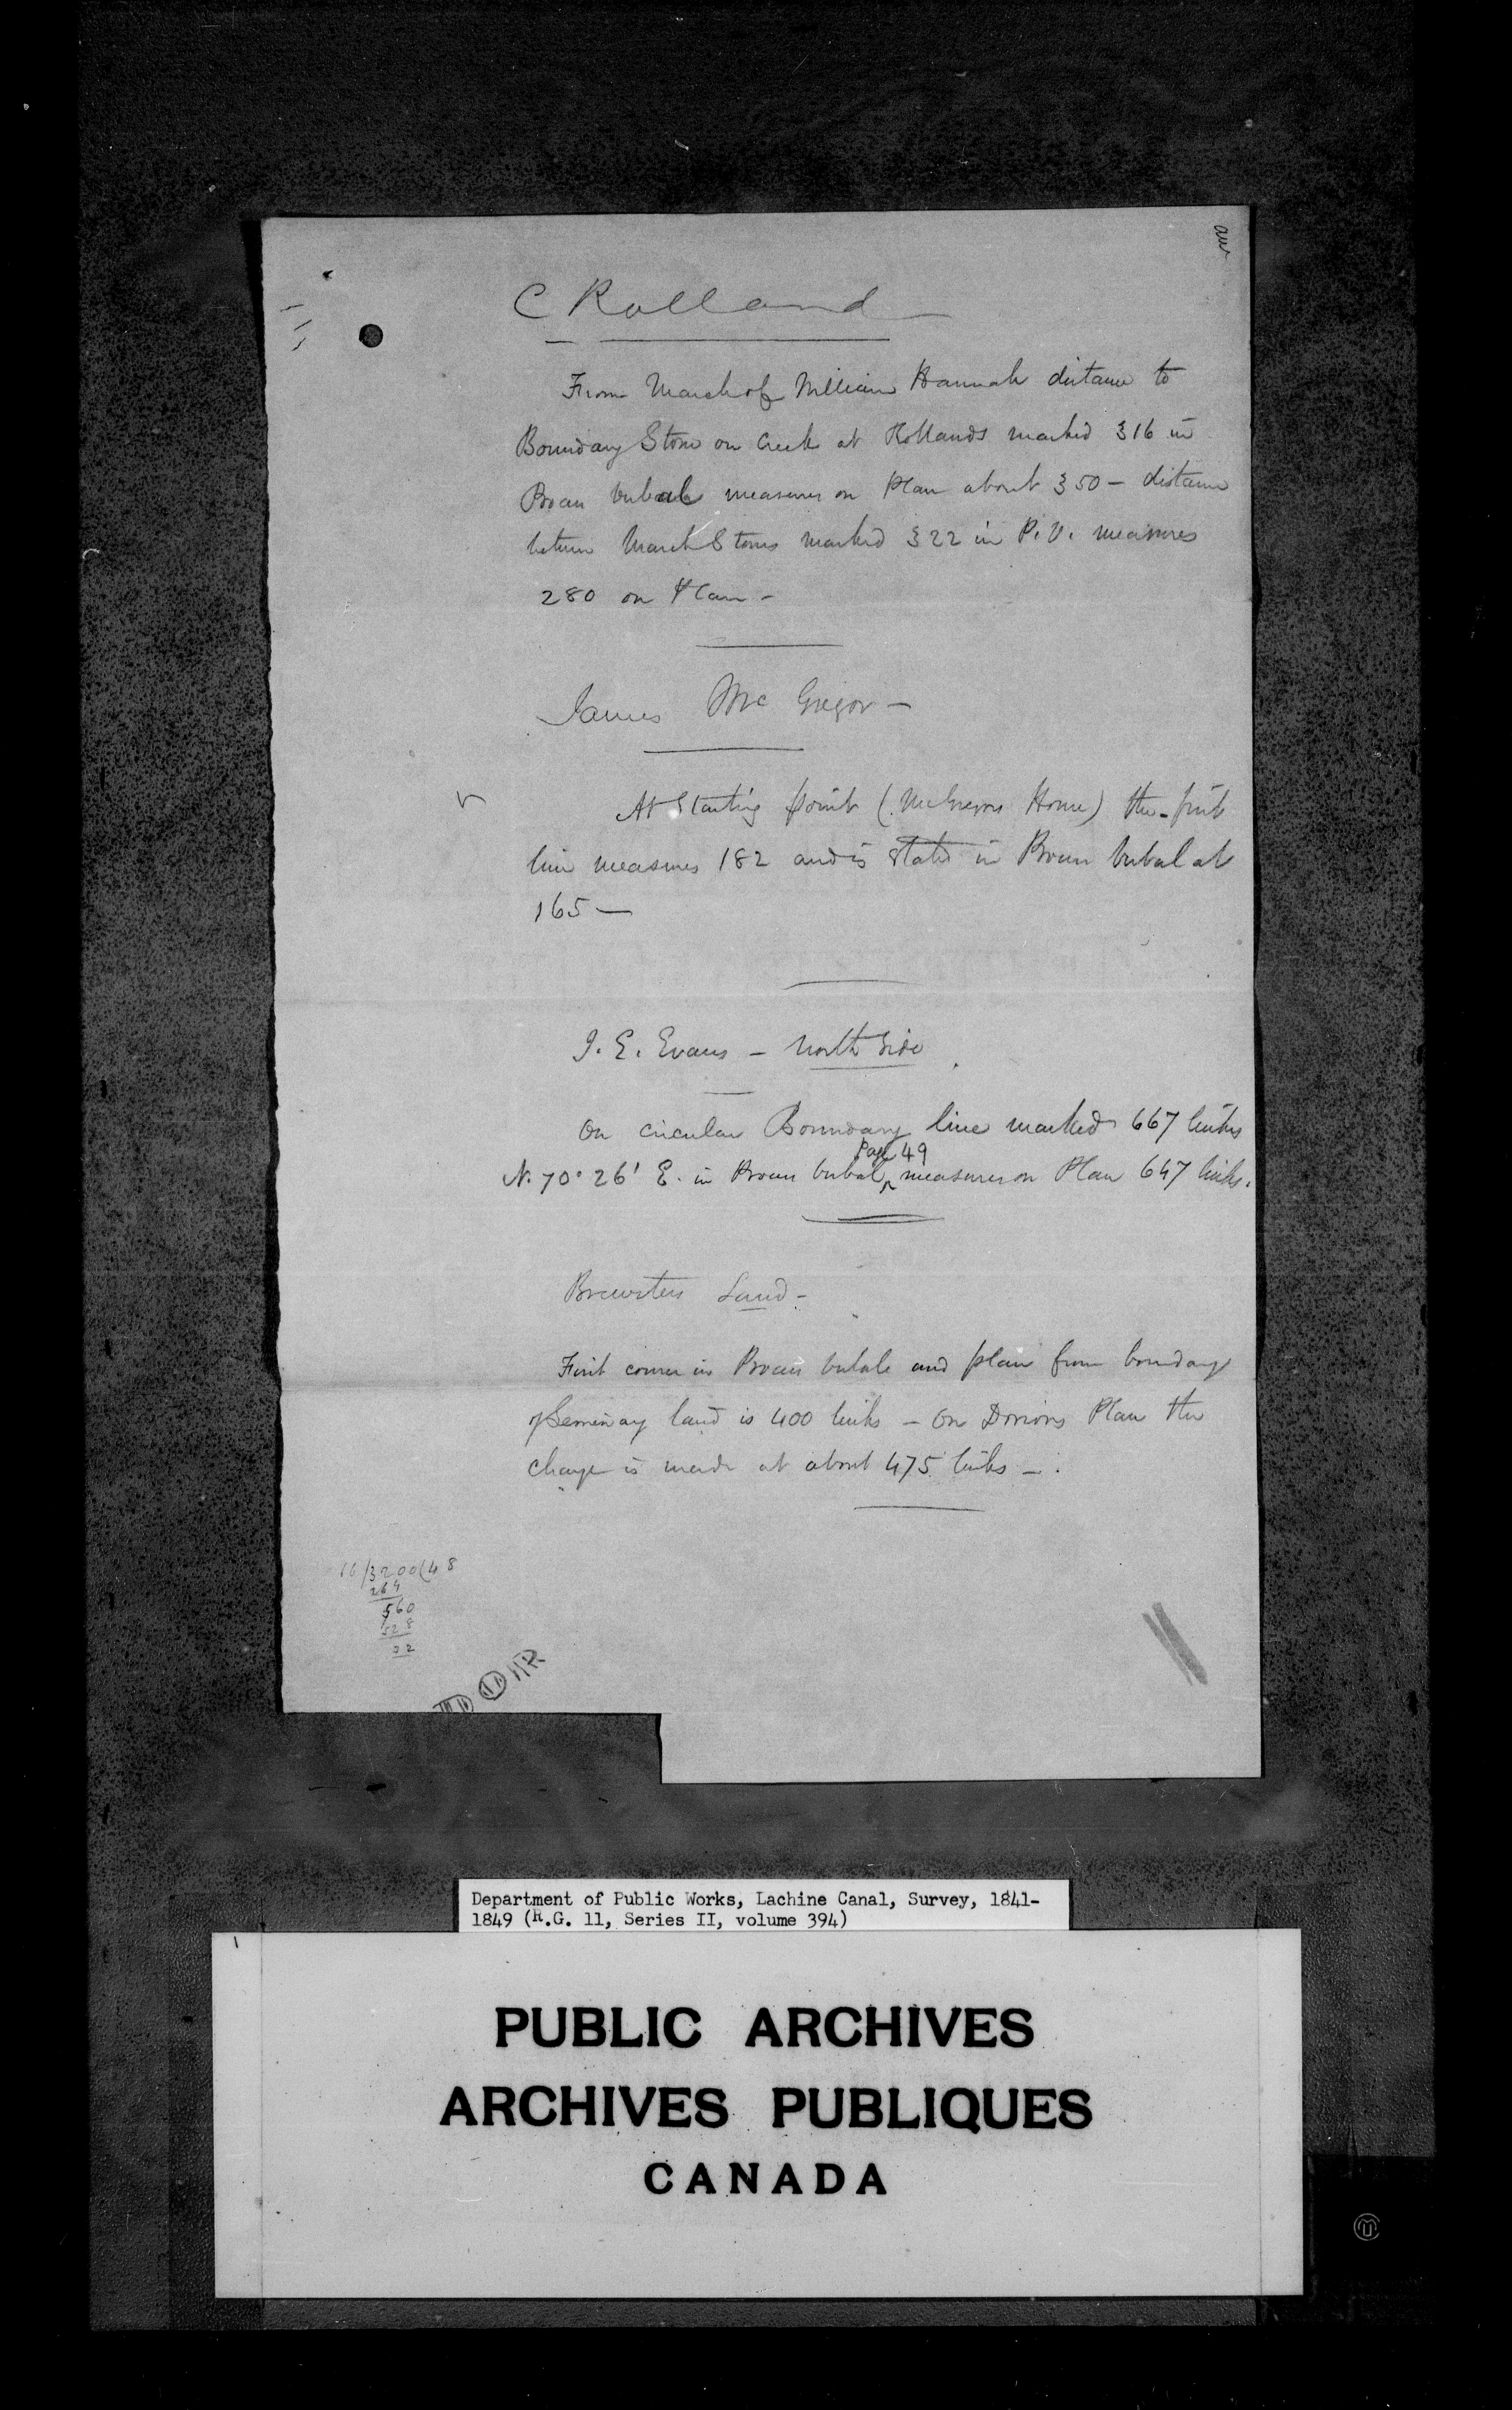 aw
C Rolland
From March of William Hannah distance to
Boundary Stone on Creek at Rollands marked 316 in
Procès verbal measures on Plan about 350 - distance
between March Stones marked 322 in P.V. measures
280 on Plan -
James McGregor -
At Starting point (McGregors House) the first
line measures 182 and is stated in Procès verbal at
165 -
J. E. Evans - North Side
On circular Boundary line marked 667 links
Page 49
N. 70° 26' E. in Procès verbal measures on Plan 647 links.
Brewsters Land -
First course in Procès verbale and plan from boundary
of Seminary land is 400 links - On Dorions Plan the
change is made at about 475 links -
66/3200(48
264
560
528
32
Department of Public Works, Lachine Canal, Survey, 1841-
1849 (R.G. 11, Series II, volume 394)
PUBLIC ARCHIVES
ARCHIVES PUBLIQUES
CANADA